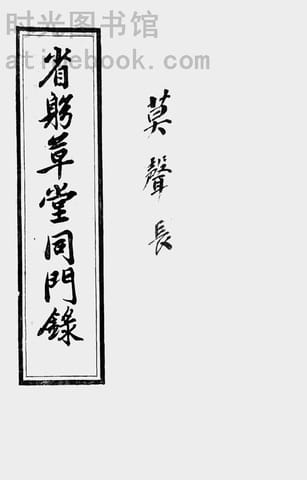 时光图书馆
atimebook.com
省躬草堂同門錄
莫聲長